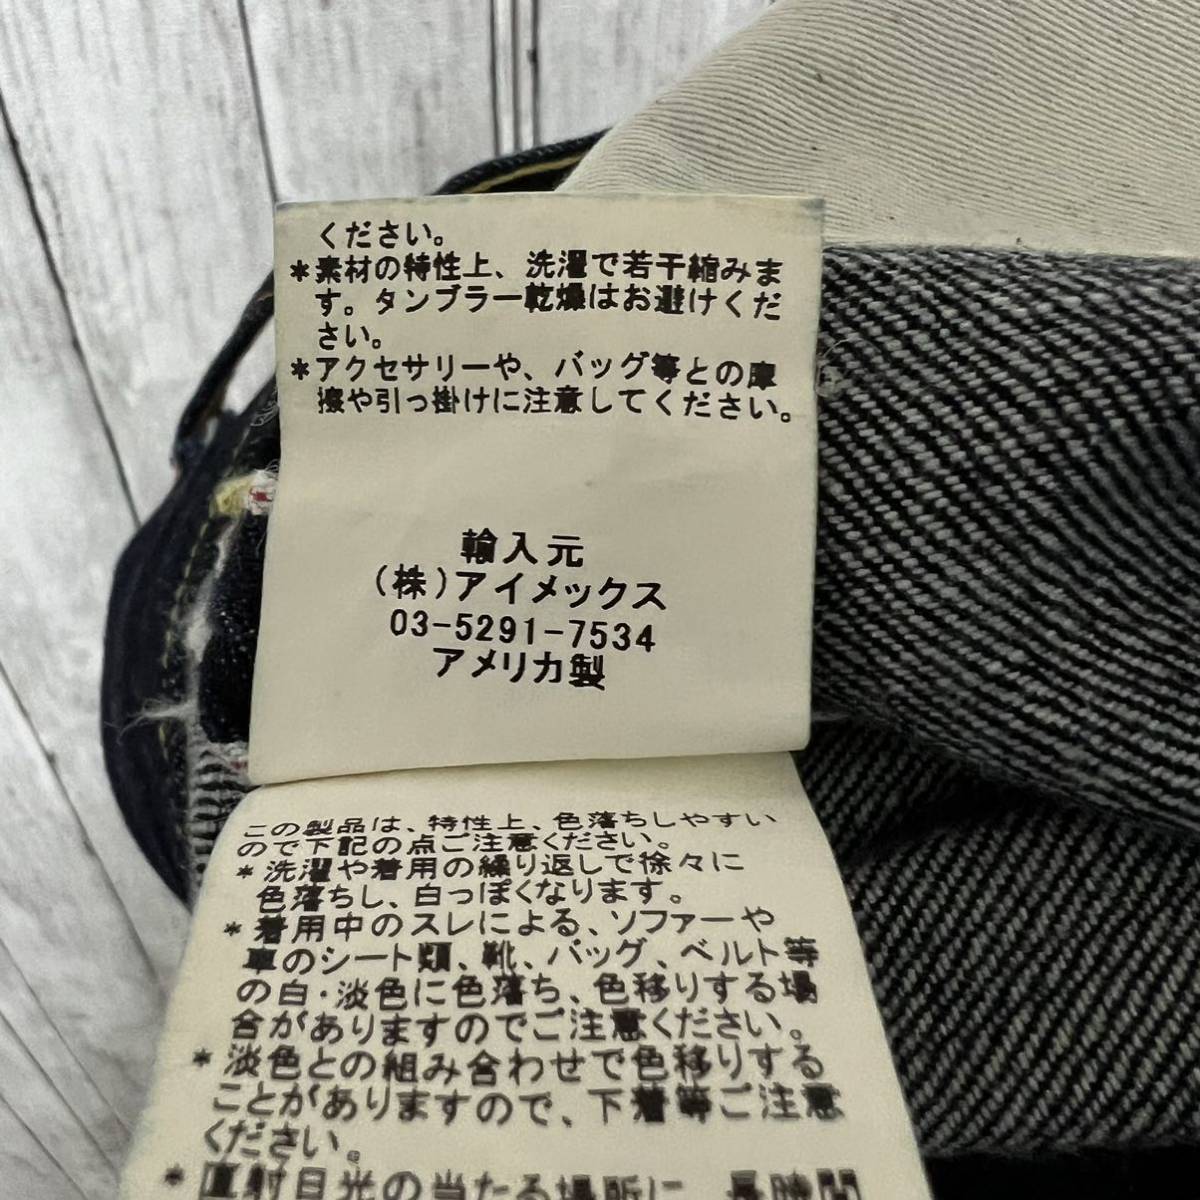 ください。
*素材の特性上、洗濯で若干縮みま
す。タンブラー乾燥はお避けくだ
さい。
*アクセサリーや、バッグ等との摩
擦や引っ掛けに注意してください。
輸入元
(株)アイメックス
03-5291-7534
アメリカ製
この製品は、特性上、色落ちしやすい
ので下記の点ご注意ください。
*洗濯や着用の繰り返しで徐々に
色落ちし、白っぽくなります。
*着用中のスレによる、ソファーや
車のシート類、靴、バッグ、ベルト等
の白・淡色に色落ち、色移りする場
合がありますのでご注意ください。
*淡色との組み合わせで色移りする
ことがありますので、下着等ご注意
ください。
*直射日光の当たる場所に、長時間